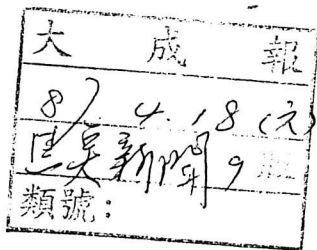 大成報
87. 4. 18 (六)
新聞 9 版
類號：